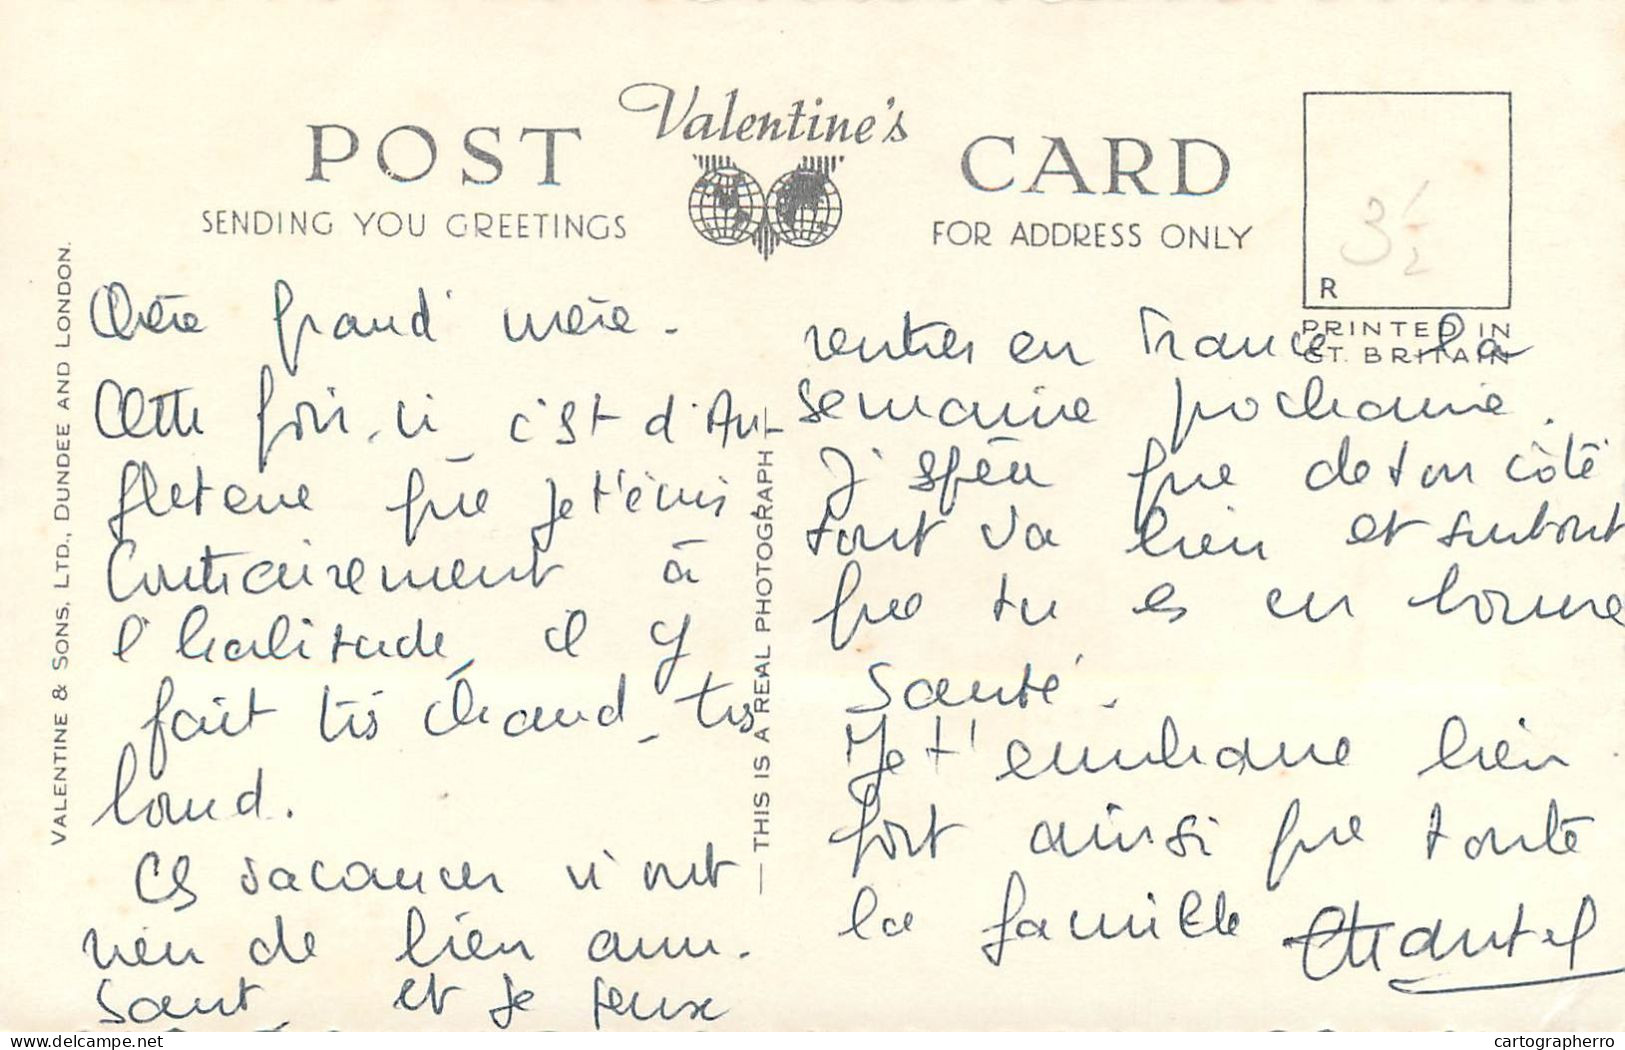 POST Valentine's CARD
SENDING YOU GREETINGS
FOR ADDRESS ONLY
3 1/2
R
PRINTED IN
GT. BRITAIN
VALENTINE & SONS, LTD., DUNDEE AND LONDON.
THIS IS A REAL PHOTOGRAPH
Chère Grand' mère.
Cette fois-ci c'est d'An-
gleterre que je t'écris
Contrairement à
l'habitude, il y
fait très chaud, très
lourd.
Ces vacances n'ont
rien de bien amu-
sant et je
rentrer en France la
semaine prochaine.
J'espère que de ton côté
tout va bien et surtout
que tu es en bonne
Santé.
Je t'embrasse bien
fort ainsi que toute
la famille Chantal
delcampe.net
cartographerro